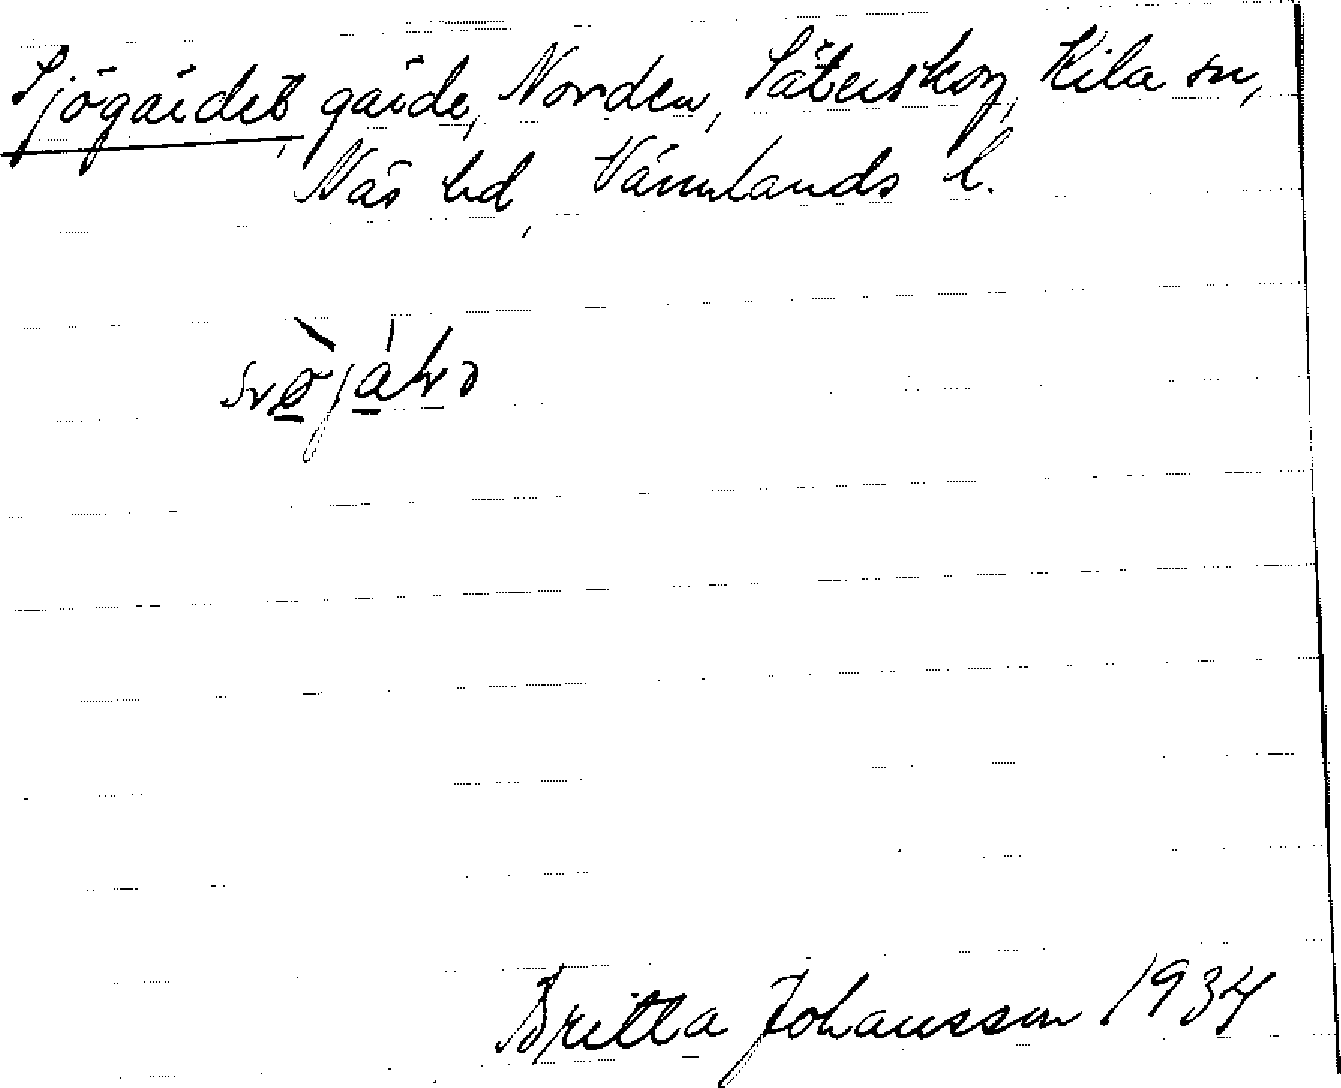 Sjögärdet, gärde, Norden, Säterskog, Kila sn,
Näs hd, Värmlands l.
Britta Johansson 1934